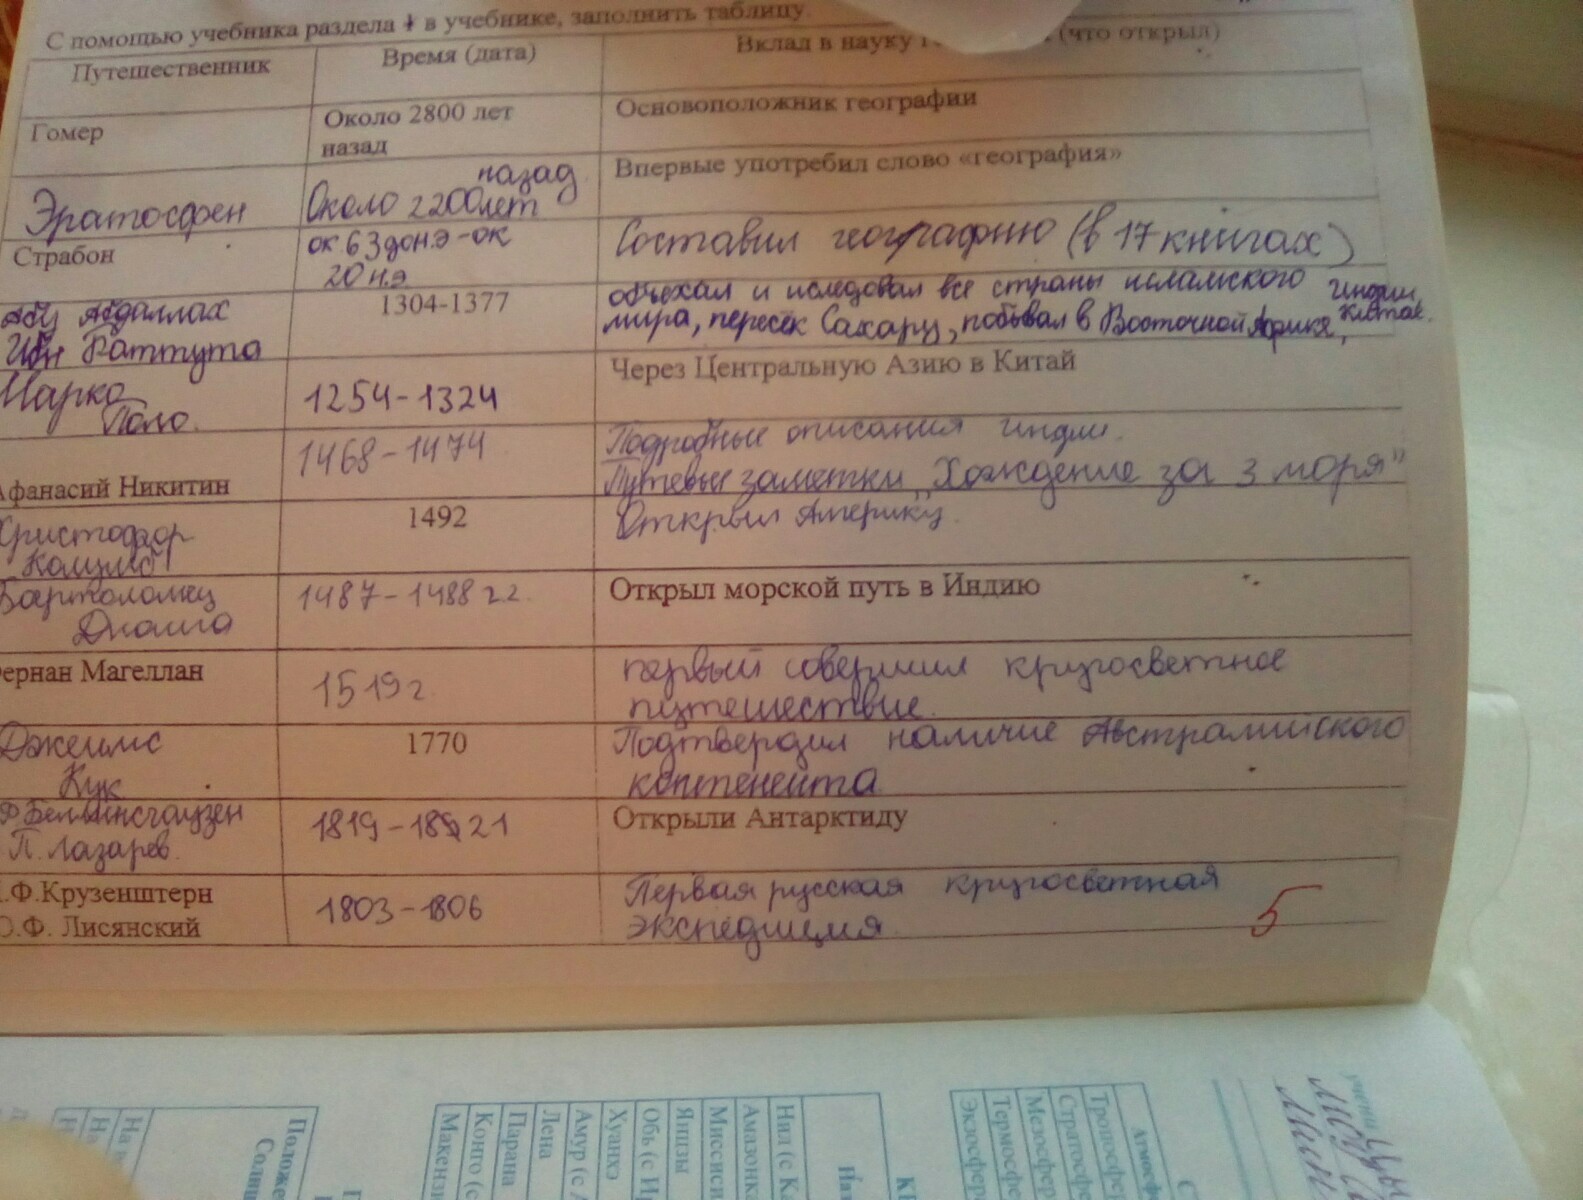 С помощью учебника раздела 1 в учебнике, заполнить таблицу.
Путешественник Время (дата) Вклад в науку (что открыл)
Гомер Около 2800 лет назад Основоположник географии
Эратосфен Около 2200 лет назад Впервые употребил слово «география»
Страбон ок 63 до н.э - ок 20 н.э Составил географию (в 17 книгах)
Абу Абдаллах Ибн Баттута 1304-1377 объехал и иследовал все страны исламского мира, пересек Сахару, побывал в Восточной Африке, Индии, Китае.
Марко Поло. 1254-1324 Через Центральную Азию в Китай
Афанасий Никитин 1468-1474 Подробные описания индии.
Путевые заметки „Хождение за 3 моря"
Христофор Колумб 1492 Открыл Америку.
Бартоломеу 1487-1488 г.г. Открыл морской путь в Индию
ернан Магеллан 1519 г первый совершил кругосветное
путешествие.
Джеимс Кук 1770 Подтвердил наличие Австралийского
контенента
Ф Беллинсгаузен П. Лазарев. 1819-1821 Открыли Антарктиду
.Ф.Крузенштерн 1803-1806 Первая русская кругосветная
.Ф. Лисянский экспедиция.
5
Положе
Солн
Макензи
Конго (с
Парана
Лена
Амур (с А
Хуанхэ
Обь (с Ир
Янцзы
Миссиси
Амазонка
Нил (с Ка
Экзосфер
Термосфе
Мезосфер
Стратосф
Тропосфе
Атмосф